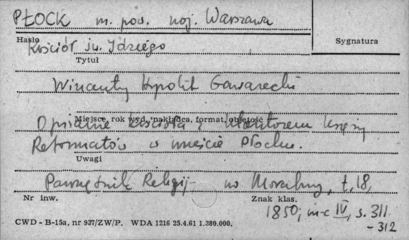 PŁOCK m. pow. woj. Warszawa
Hasło
Kościół św. Idziego
Sygnatura
Tytuł
Wincenty Hipolit Gawarecki
Miejsce, rok wyd., nakładca, format, objętość
Opisanie kościoła z klasztorem księży
Reformatów w mieście Płocku.
Uwagi
Pamiętnik Religij - no Moralny, t. 18,
Nr inw.
Znak klas.
1850, m-c IV, s. 311
- 312
CWD - B-15a, nr 937/ZW/P. WDA 1216 25.4.61 1.380.000.